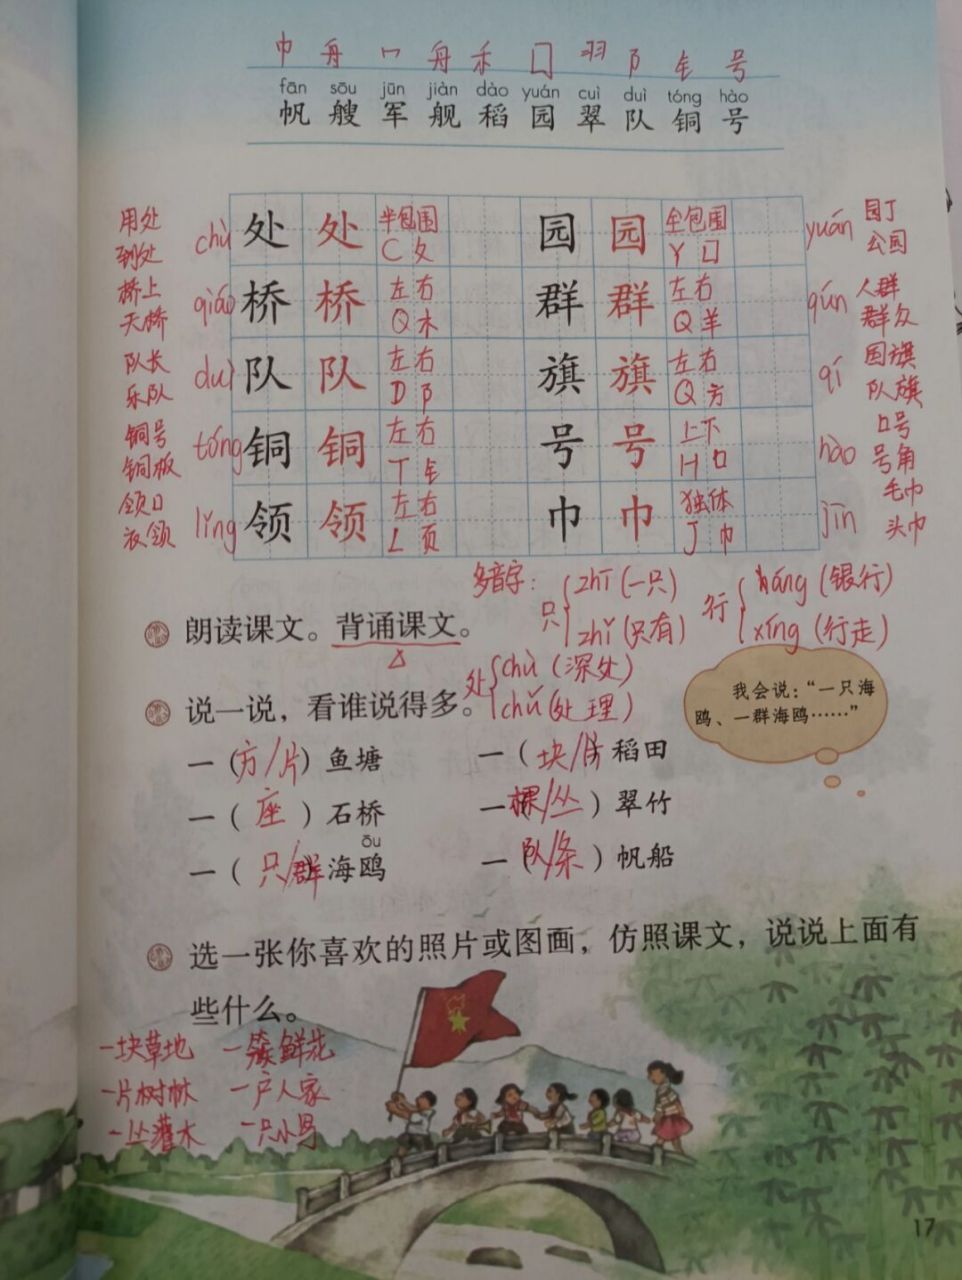 巾 舟 冖 舟 禾 囗 羽 阝 钅 号
fān sōu jūn jiàn dào yuán cuì duì tóng hào
帆 艘 军 舰 稻 园 翠 队 铜 号
用处 到处 chù 处 处 半包围 C 夂 园 园 全包围 Y 囗 yuán 园丁 公园
桥上 天桥 qiáo 桥 桥 左右 Q 木 群 群 左右 Q 羊 qún 人群 群众
队长 乐队 duì 队 队 左右 D 阝 旗 旗 左右 Q 方 qí 国旗 队旗
铜号 铜板 tóng 铜 铜 左右 T 钅 号 号 上下 H 口 hào 口号 号角
领口 衣领 lǐng 领 领 左右 L 页 巾 巾 独体 J 巾 jīn 毛巾 头巾
多音字: 只 zhī (一只) zhǐ (只有) 行 háng (银行) xíng (行走)
朗读课文。背诵课文。
处 chù (深处) chǔ (处理)
说一说,看谁说得多。
我会说:“一只海
鸥、一群海鸥……”
一(方/片)鱼塘 一(块/片 稻田
一(座)石桥 一棵/丛)翠竹
ōu
一(只/群 海鸥 一(队/条)帆船
选一张你喜欢的照片或图画,仿照课文,说说上面有
些什么。
一块草地 一簇鲜花
一片树林 一户人家
一丛灌木 一只小鸟
17